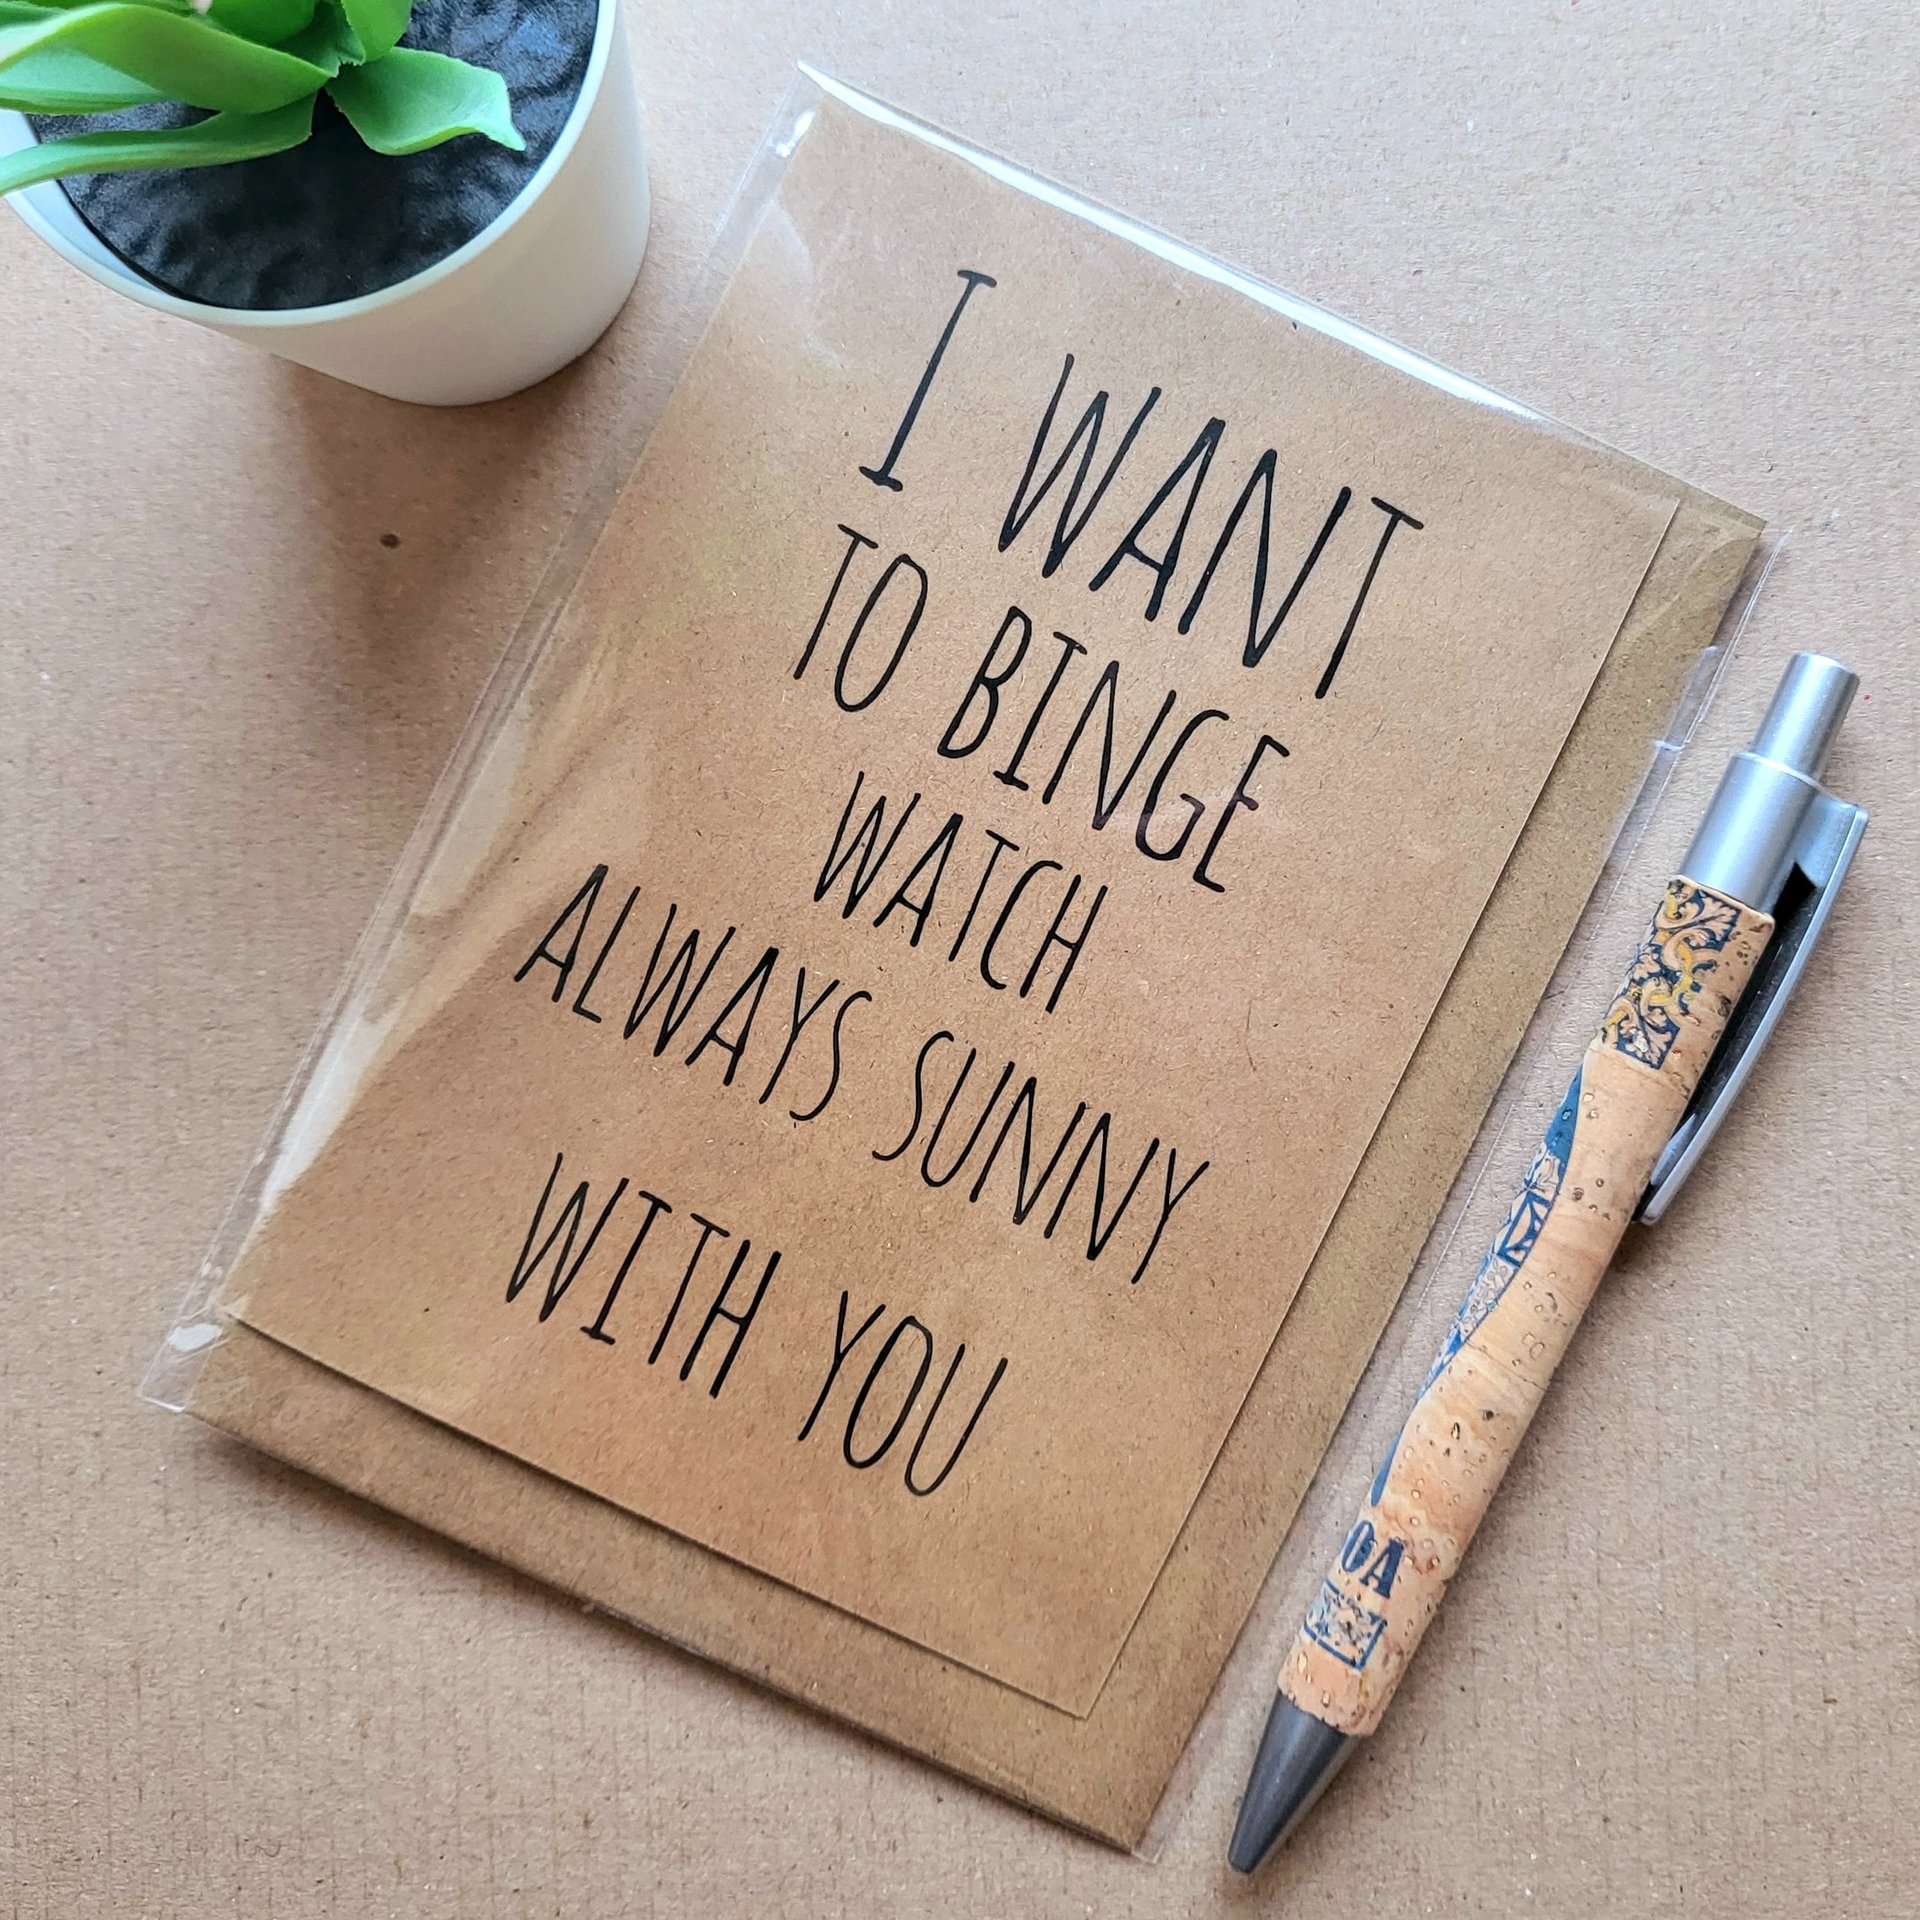 I WANT
TO BINGE
WATCH
ALWAYS SUNNY
WITH YOU
OA